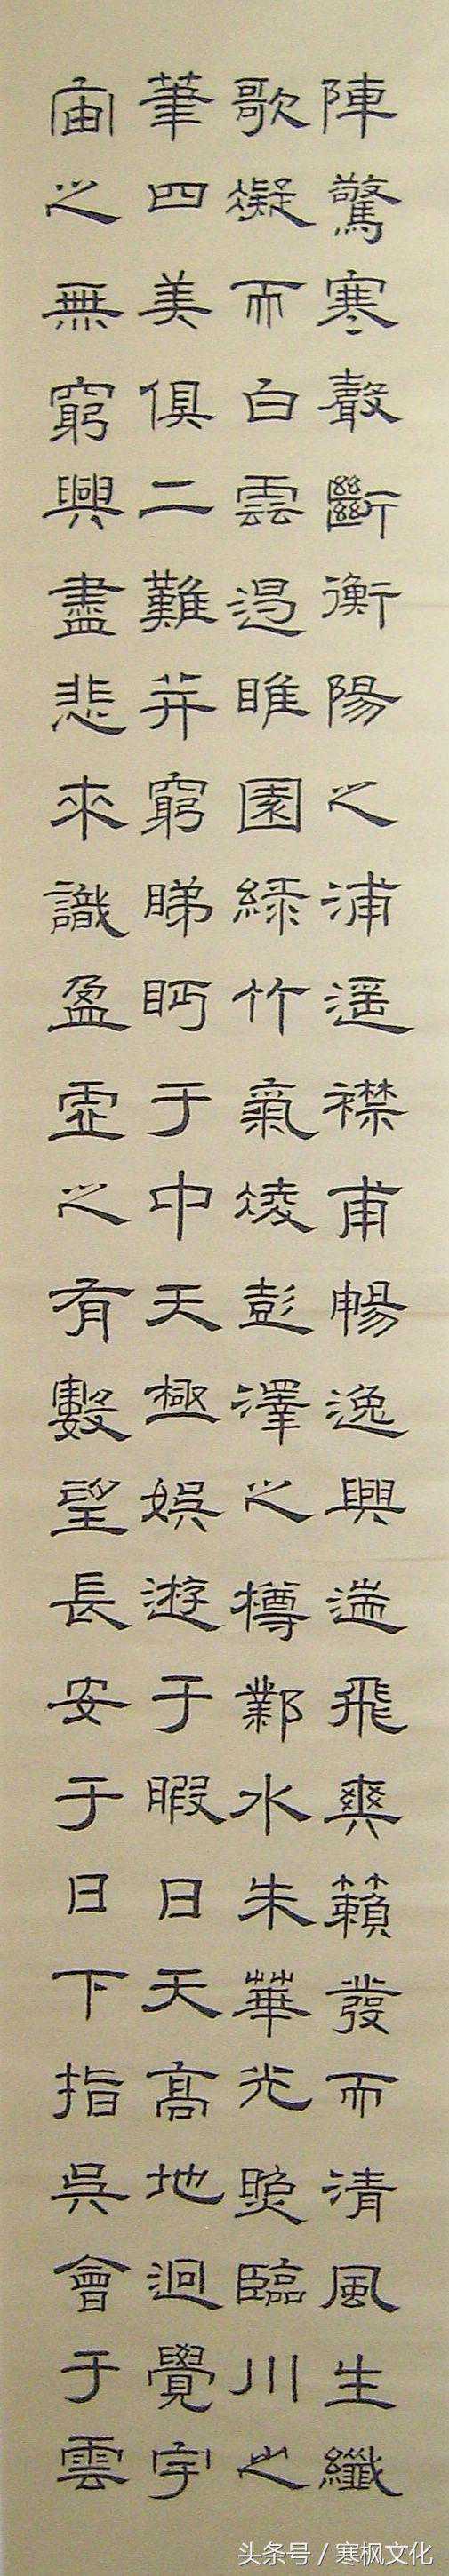 陣驚寒聲斷衡陽之浦遥襟甫暢逸興遄飛爽籟發而清風生纖
歌凝而白雲遏睢園綠竹氣凌彭澤之樽鄴水朱華光照臨川之
筆四美俱二難并窮睇眄于中天極娛遊于暇日天高地迥覺宇
宙之無窮興盡悲來識盈虛之有數望長安于日下指吳會于雲
头条号 / 寒枫文化